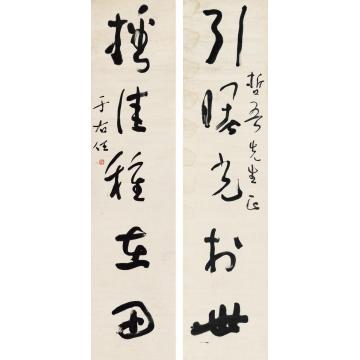 哲吾先生正
引曙光於世
播佳種在田
于右任